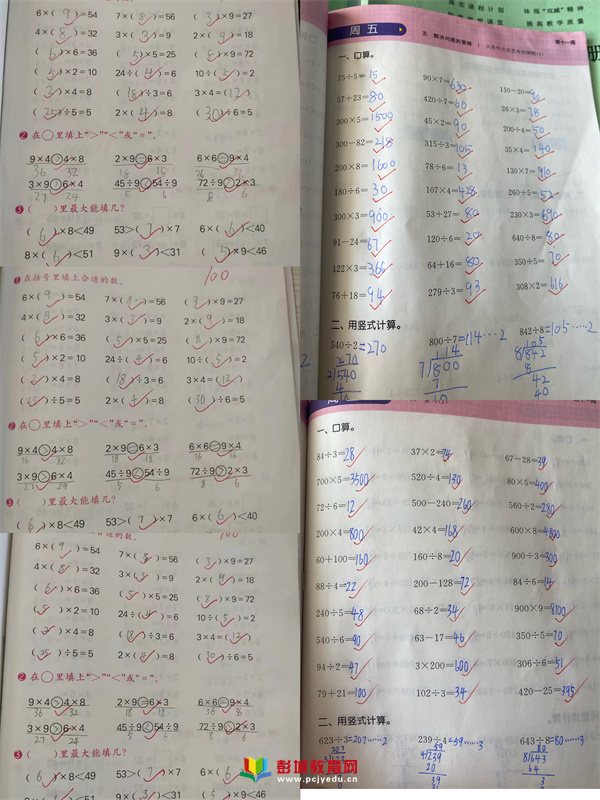 6×( 9 )=54 7×( 8 )=56 ( 3 )×9=27
4×( 8 )=32 3×( 3 )=9 2×( 9 )=18
( 6 )×6=36 ( 5 )×5=25 ( 8 )×9=72
( 5 )×2=10 24÷( 4 )=6 10÷( 5 )=2
( 2 )×4=8 ( 18 )÷3=6 3×4=( 12 )
( 25 )÷5=5 2×( 4 )=8 ( 30 )÷6=5
❷在○里填上“>”“<”或“=”。
9×4>4×8 2×9=6×3 6×6=9×4
36 32 18 18 36 36
3×9>6×4 45÷9<54÷9 72÷9>2×3
27 24 5 6 8 6
❸( )里最大能填几?
( 6 )×8<49 53>( 7 )×7 6×( 6 )<40
8×( 6 )<51 9×( 3 )<31 ( 5 )×9<46
❶在括号里填上合适的数。
100
6×( 9 )=54 7×( 8 )=56 ( 3 )×9=27
4×( 8 )=32 3×( 3 )=9 2×( 9 )=18
( 6 )×6=36 ( 5 )×5=25 ( 8 )×9=72
( 5 )×2=10 24÷( 4 )=6 10÷( 5 )=2
( 2 )×4=8 ( 18 )÷3=6 3×4=( 12 )
( 25 )÷5=5 2×( 4 )=8 ( 30 )÷6=5
❷在○里填上“>”“<”或“=”。
9×4>4×8 2×9=6×3 6×6=9×4
3×9>6×4 45÷9<54÷9 72÷9>2×3
27 24 5 6 8 6
❸( )里最大能填几?
( 6 )×8<49 53>( 7 )×7 6×( 6 )<40
6×( 9 )=54 7×( 8 )=56 ( 3 )×9=27
4×( 8 )=32 3×( 3 )=9 2×( 9 )=18
( 6 )×6=36 ( 5 )×5=25 ( 8 )×9=72
( 5 )×2=10 24÷( 4 )=6 10÷( 5 )=2
( 2 )×4=8 ( 18 )÷3=6 3×4=( 12 )
( 25 )÷5=5 2×( 4 )=8 ( 30 )÷6=5
❷在○里填上“>”“<”或“=”。
9×4>4×8 2×9=6×3 6×6=9×4
36 32 18 18 36 36
3×9>6×4 45÷9<54÷9 72÷9>2×3
27 24 5 6 8 6
❸( )里最大能填几?
( 6 )×8<49 53>( 7 )×7 6×( 6 )<40
体现“双减”精神
提高教学质量
周五
第十一周
一、口算。
75÷5=15 90×7=630 110-20=90
57+23=80 420÷7=60 26×3=78
300×5=1500 45×2=90 200÷4=50
300-82=218 315÷3=105 35×4=140
200×8=1600 78÷6=13 130×7=910
180÷6=30 107×4=428 260÷5=52
300×3=900 53+27=80 230×3=690
91-24=67 120÷6=20 640÷8=80
122×3=366 64+16=80 350÷5=70
76+18=94 279÷3=93 308×2=616
二、用竖式计算。
540÷2=270 800÷7=114……2 842÷8=105……2
一、口算。
84÷3=28 37×2=74 67-28=39
700×5=3500 520÷4=130 80×5=400
72÷6=12 500-240=260 560÷2=280
200×4=800 42×4=168 600×8=4800
60+100=160 160÷8=20 900÷3=300
88÷4=22 200-128=72 84÷6=14
240÷5=48 68÷2=34 900×9=8100
540÷6=90 63-17=46 350÷5=70
94÷2=47 3×200=600 306÷6=51
79+21=100 102÷3=34 420-25=395
二、用竖式计算。
623÷3=207……2 239÷4=59……3 643÷8=80……3
彭城教育网
www.pcjyedu.cn